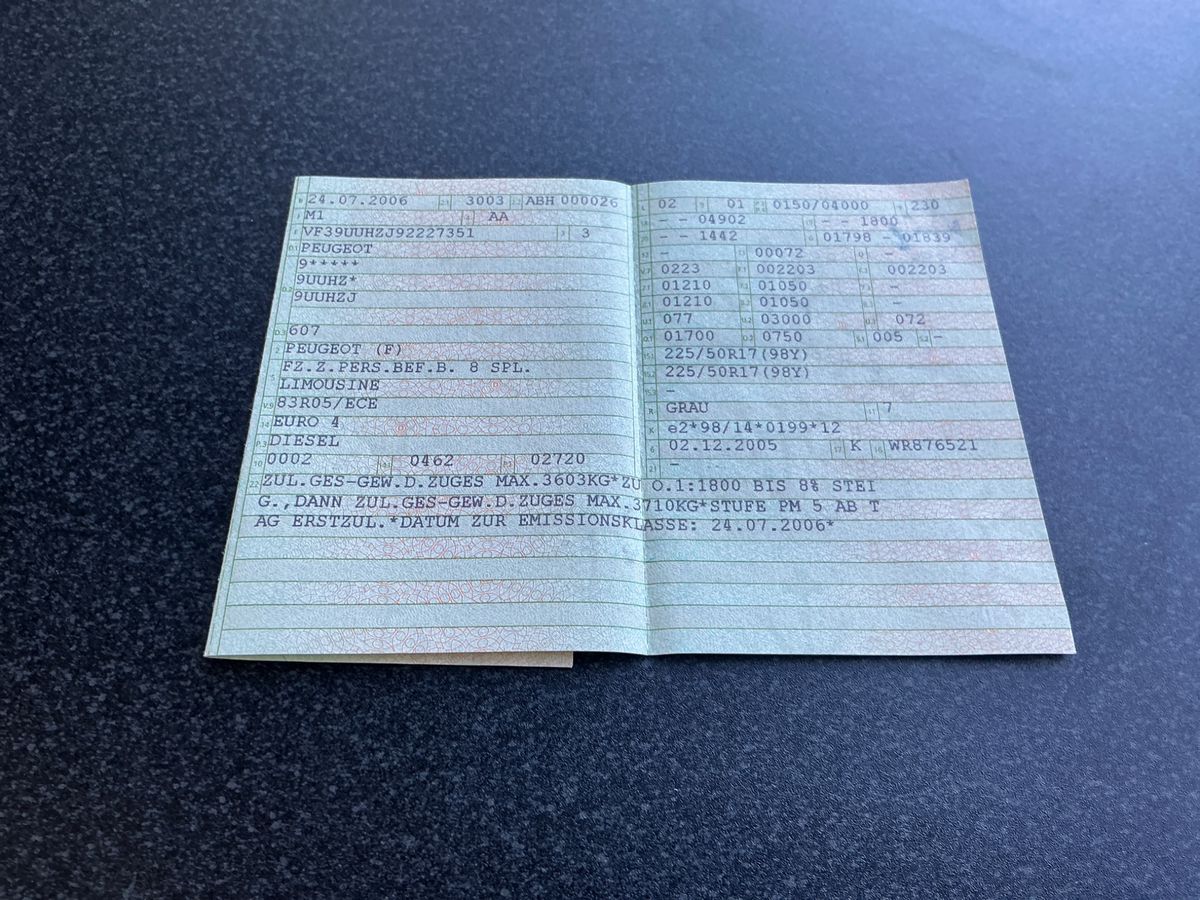 24.07.2006 3003 ABH 000026
M1 AA
VF39UUHZJ92227351 3
PEUGEOT
9*****
9UUHZ*
9UUHZJ
607
PEUGEOT (F)
FZ.Z.PERS.BEF.B. 8 SPL.
LIMOUSINE
83R05/ECE
EURO 4
DIESEL
0002 0462 02720
02 01 0150/04000 230
- - 04902 - - 1800
- - 1442 01798 - 01839
- 00072 -
0223 002203 002203
01210 01050 -
01210 01050 -
077 03000 072
01700 0750 005 -
225/50R17(98Y)
225/50R17(98Y)
-
GRAU 7
e2*98/14*0199*12
02.12.2005 K WR876521
-
ZUL.GES-GEW.D.ZUGES MAX.3603KG*ZU O.1:1800 BIS 8% STEI
G.,DANN ZUL.GES-GEW.D.ZUGES MAX.3710KG*STUFE PM 5 AB T
AG ERSTZUL.*DATUM ZUR EMISSIONSKLASSE: 24.07.2006*